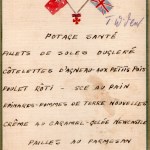 POTAGE SANTÉ
FILETS DE SOLES DUGLERÉ
CÔTELETTES D'AGNEAU AUX PETITS POIS
POULET RÔTI - SCE AU PAIN
EPINARDS - POMMES DE TERRE NOUVELLES
CRÊME AU CARAMEL - GELÉE NEWCASTLE
PAILLES AU PARMESAN